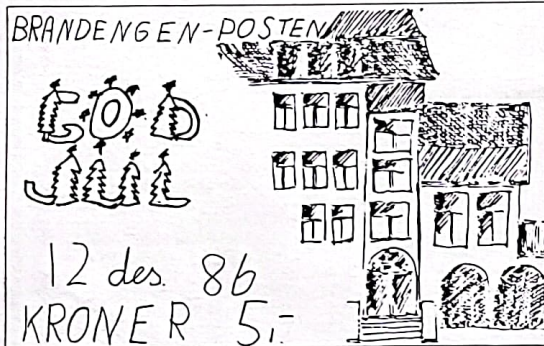 BRANDENGEN-POSTEN
GOD
JUL
12 des. 86
KRONER 5,-